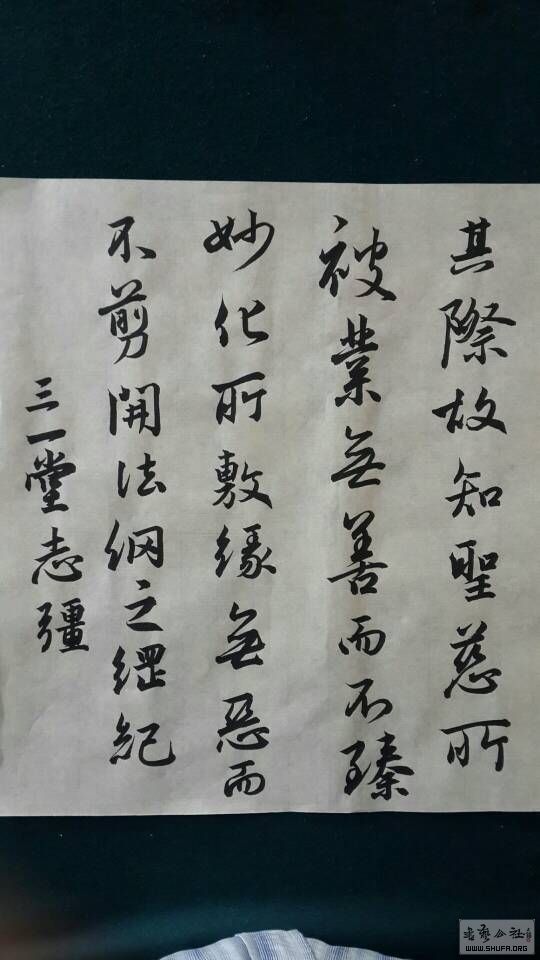 其際故知聖慈所
被業無善而不臻
妙化所敷緣無惡而
不剪開法網之綱紀
三一堂志彊
书艺公社
WWW.SHUFA.ORG